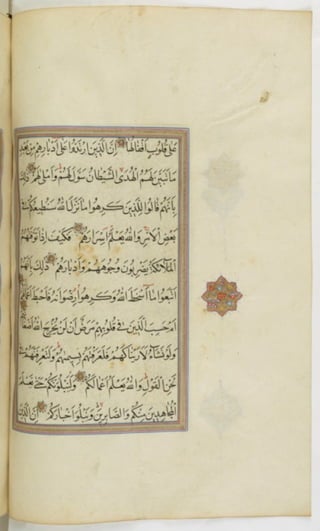 عَلَىٰ قُلُوبٍ أَقْفَالُهَا إِنَّ الَّذِينَ ارْتَدُّوا عَلَىٰ أَدْبَارِهِمْ مِنْ بَعْدِ
مَا تَبَيَّنَ لَهُمُ الْهُدَى الشَّيْطَانُ سَوَّلَ لَهُمْ وَأَمْلَىٰ لَهُمْ ذَٰلِكَ
بِأَنَّهُمْ قَالُوا لِلَّذِينَ كَرِهُوا مَا نَزَّلَ اللَّهُ سَنُطِيعُكُمْ فِي
بَعْضِ الْأَمْرِ وَاللَّهُ يَعْلَمُ إِسْرَارَهُمْ فَكَيْفَ إِذَا تَوَفَّتْهُمُ
الْمَلَائِكَةُ يَضْرِبُونَ وُجُوهَهُمْ وَأَدْبَارَهُمْ ذَٰلِكَ بِأَنَّهُمُ
اتَّبَعُوا مَا أَسْخَطَ اللَّهَ وَكَرِهُوا رِضْوَانَهُ فَأَحْبَطَ أَعْمَالَهُمْ
أَمْ حَسِبَ الَّذِينَ فِي قُلُوبِهِمْ مَرَضٌ أَنْ لَنْ يُخْرِجَ اللَّهُ أَضْغَانَهُمْ
وَلَوْ نَشَاءُ لَأَرَيْنَاكَهُمْ فَلَعَرَفْتَهُمْ بِسِيمَاهُمْ وَلَتَعْرِفَنَّهُمْ فِي
لَحْنِ الْقَوْلِ وَاللَّهُ يَعْلَمُ أَعْمَالَكُمْ وَلَنَبْلُوَنَّكُمْ حَتَّىٰ نَعْلَمَ
الْمُجَاهِدِينَ مِنْكُمْ وَالصَّابِرِينَ وَنَبْلُوَ أَخْبَارَكُمْ إِنَّ الَّذِينَ